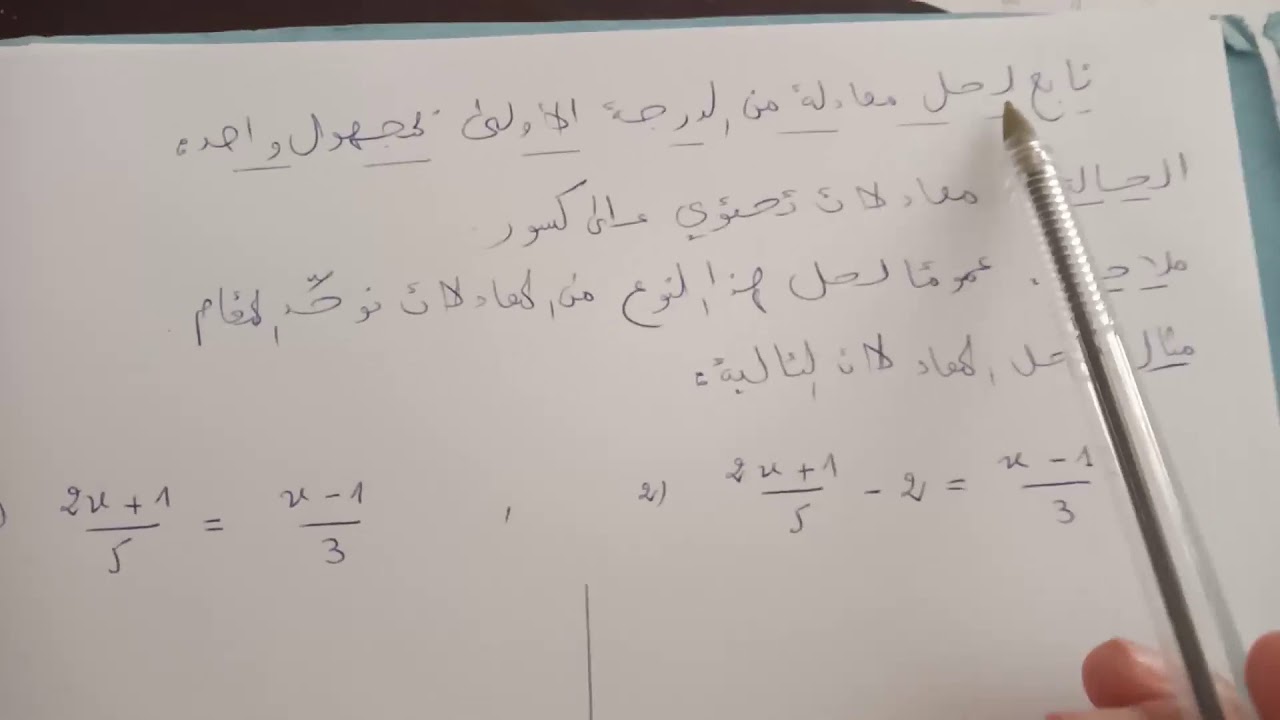 تابع لحل معادلة من الدرجة الأولى لمجهول واحد:
الحالة معادلات تحتوي على كسور
عمومًا لحل هذا النوع من المعادلات نوحّد المقام
مثال حل المعادلات التالية:
) (2x+1)/5 = (x-1)/3 , 2) (2x+1)/5 - 2 = (x-1)/3